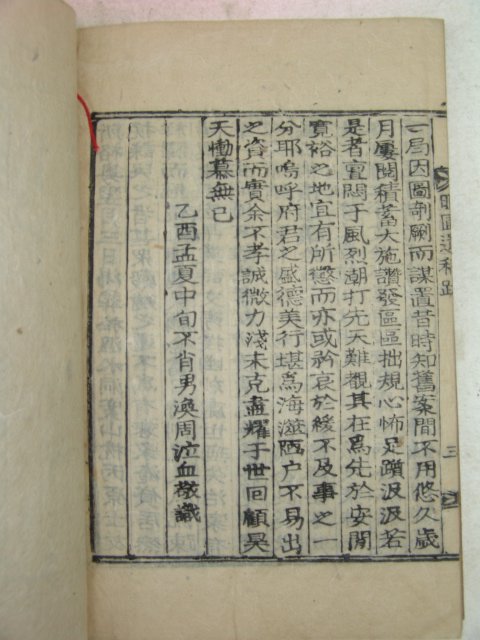 一爲因圖剞劂而謀置昔時知舊案間不用悠久歲
月屢閱積蓄大施讚發區區拙規心怖足躓汲汲若
是者亶悶于風烈潮打先天難觀其在爲先於安閒
寬裕之地宜有所懲而亦或矜哀於緩不及事之一
分耶嗚呼府君之盛德美行堪爲海邊陋户不易出
之資而實余不孝誠微力淺未克盡耀于世回顧昊
天慟慕無已
乙酉孟夏中旬不肖男渙周泣血敬識
遺稿跋
三